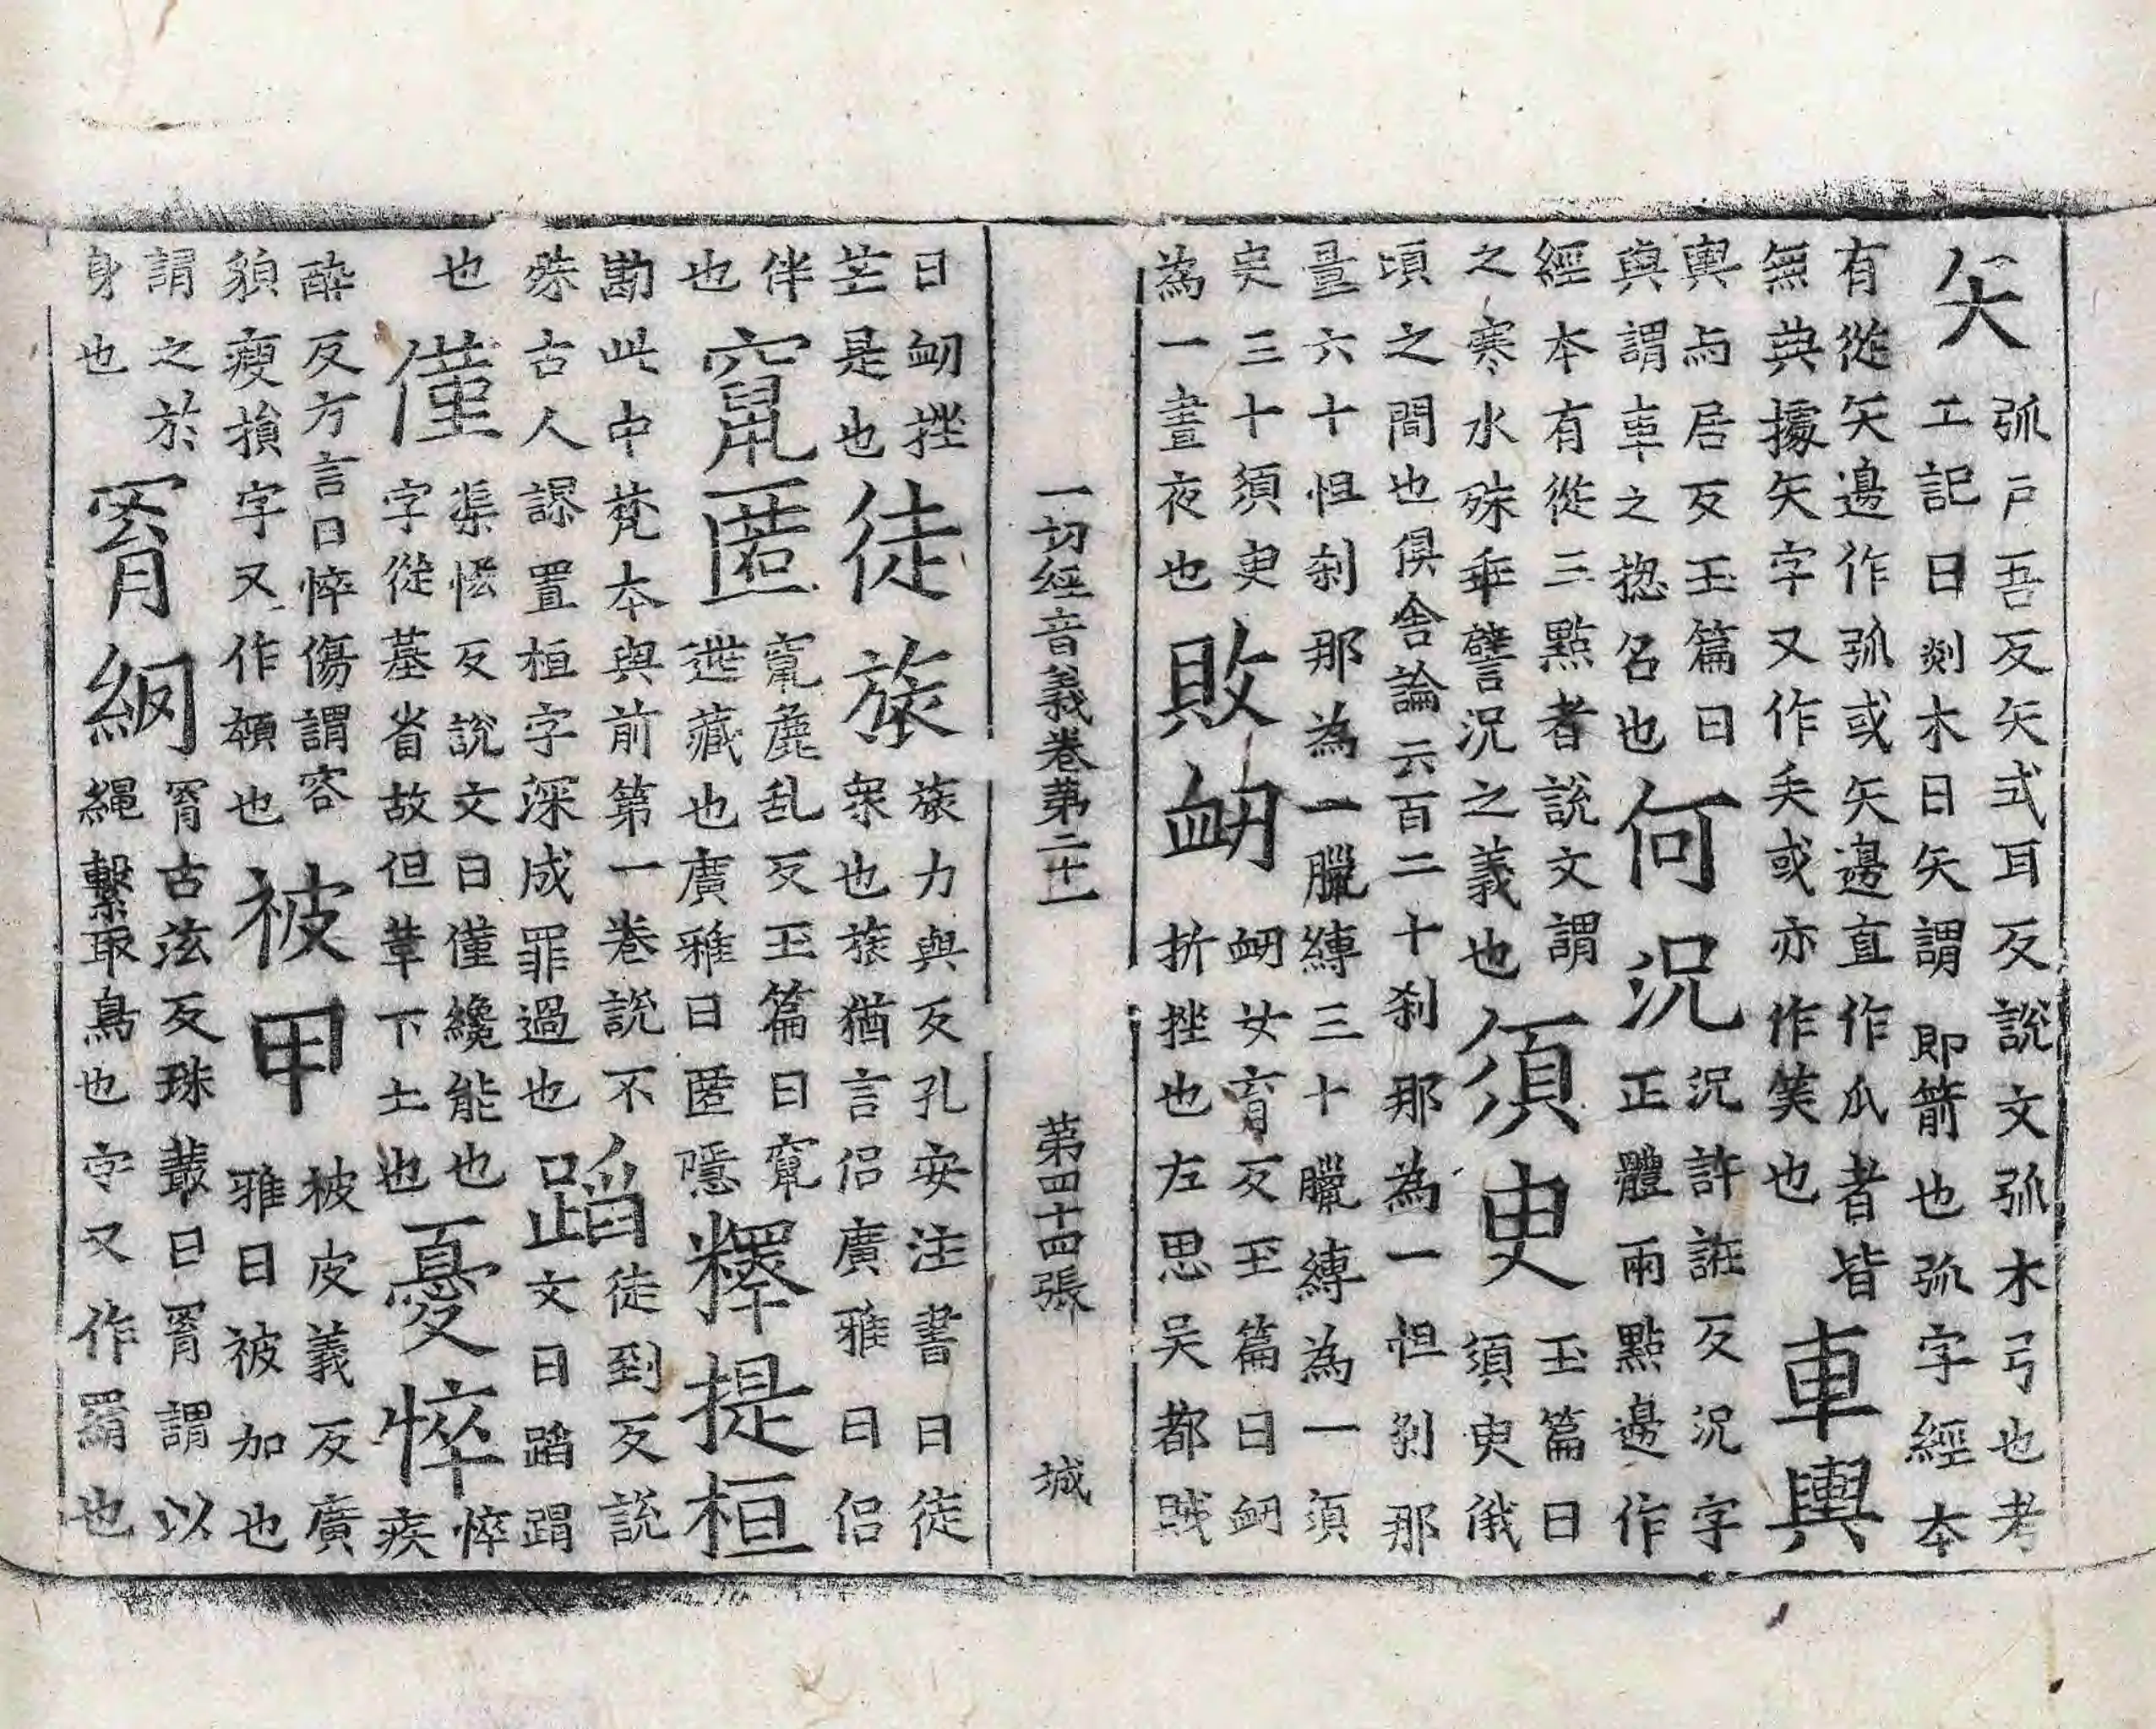 矢
弧戸吾反矢式耳反說文弧木弓也考
工記曰剡木曰矢謂即箭也弧字經本
有從矢邊作弧或矢邊直作瓜者皆
無典據矢字又作𠂕或亦作笶也
車輿
輿与居反玉篇曰
輿謂車之揔名也
何況
況許誑反況字
正體兩點邊作
經本有從三點者說文謂
之寒水殊乖譬況之義也
須臾
玉篇曰
須臾俄
頃之間也俱舍論云百二十刹那為一怛刹那
量六十怛刹那為一臘縛三十臘縛為一須
臾三十須臾
為一晝夜也
敗衂
衂女育反玉篇曰衂
折挫也左思吴都賊
一切經音義卷第二十一 第四十四張 城
曰衂挫
芒是也
徒旅
旅力與反孔安注書曰徒
衆也旅猶言侣廣雅曰侣
伴
也
竄匿
竄麁乱反玉篇曰竄
迯藏也廣雅曰匿隱
釋提桓
勘此中梵本與前第一卷說不
殊古人謬置桓字深成罪過也
蹈
徒到反說
文曰蹈蹋
也
僅
渠恡反說文曰僅纔能也
字從墓省故但草下土也
憂悴
悴
疾
醉反方言曰悴傷謂容
貌瘦損字又作顇也
被甲
被皮義反廣
雅曰被加也
謂之於
身也
罥網
罥古泫反珠叢曰罥謂以
繩繫取鳥也字又作羂也